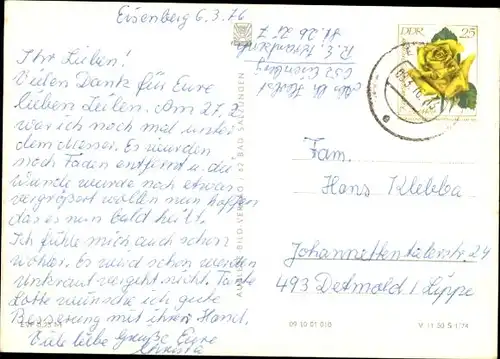 Eisenberg 6.3.76
Ihr Lieben!
Vielen Dank für Eure
lieben Zeilen. Am 27.2
war ich noch mal unter
dem Messer. Es wurden
noch Faden entfernt u. die
Wunde wurde noch etwas
vergrößert wollen nun hoffen
das es nun bald hält.
Ich fühle mich auch schon
wohler. Es wird schon werden
Unkraut vergeht nicht. Tante
Lotte wünsche ich gute
Besserung mit ihrer Hand.
Viele liebe Grüße Eure
Christa
652 Eisenberg
DDR 25
Fam.
Hans Klebba
Johannettentalerstr. 24
493 Detmold / Lippe
BILD-VERLAG 62 BAD SALZUNGEN
09 10 01 010
V 11 50 S 1/74